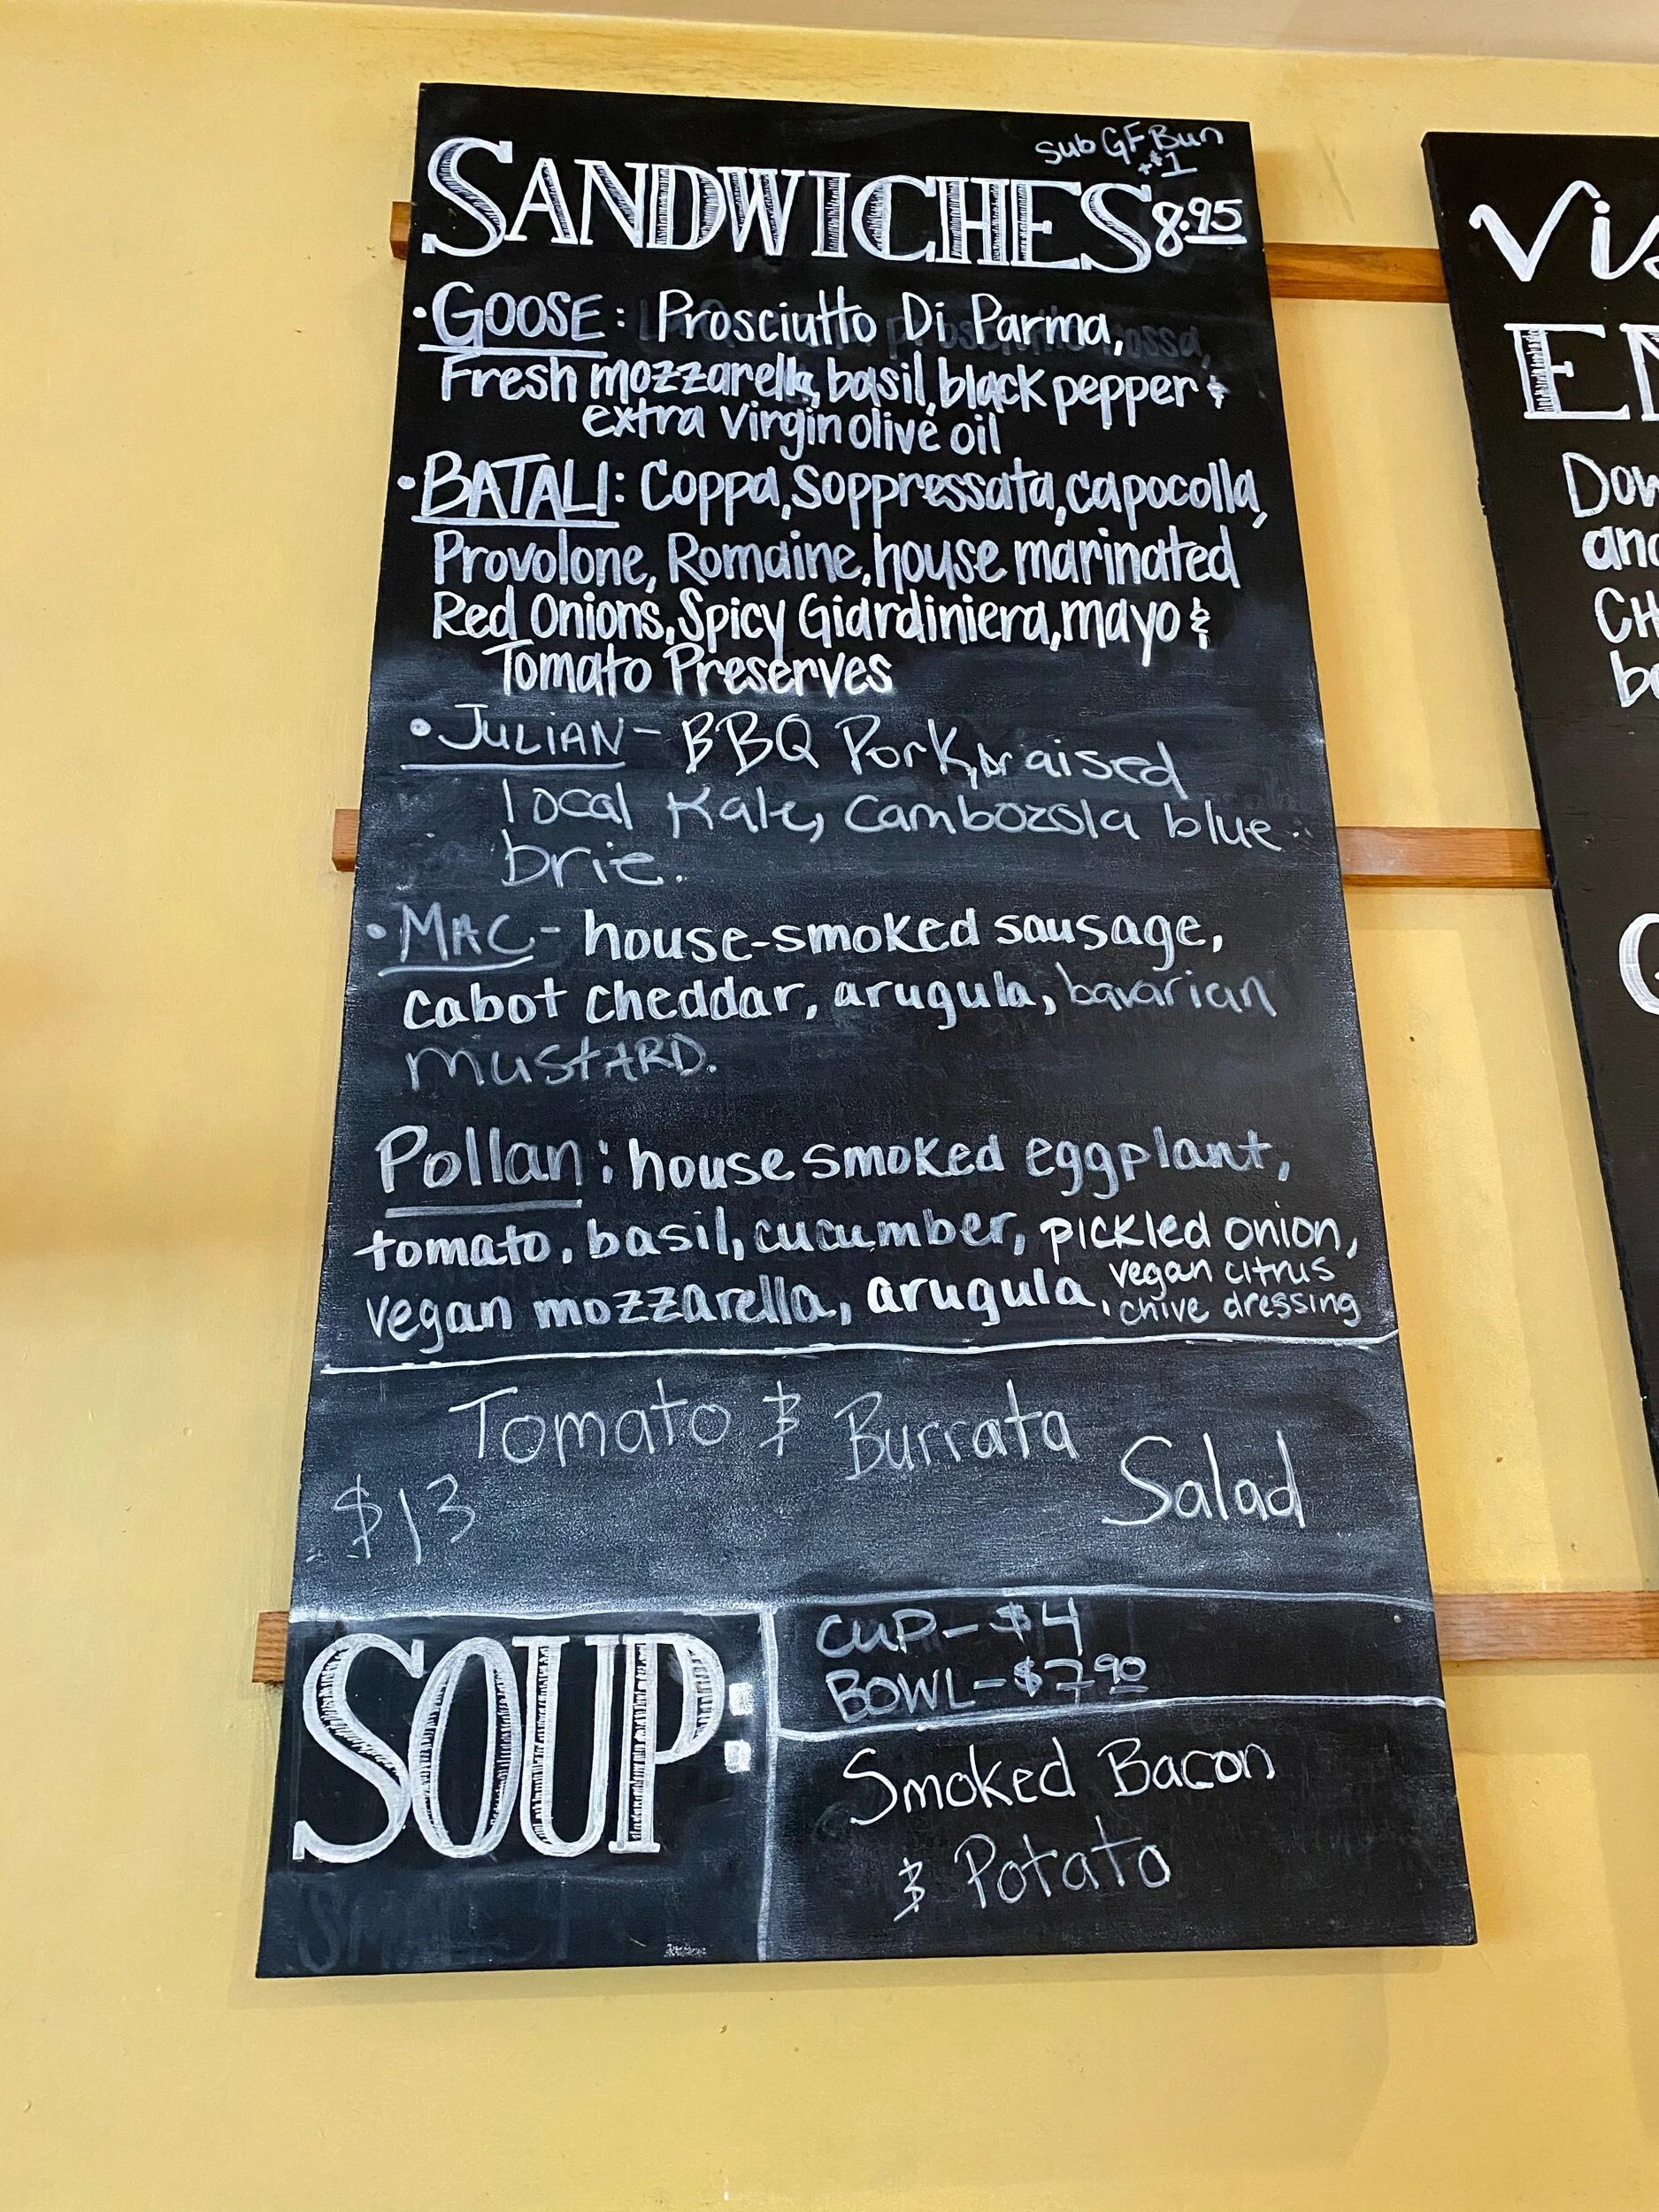 Sub GF Bun
+$1
SANDWICHES 8.95
• GOOSE: Prosciutto Di Parma,
Fresh mozzarella, basil, black pepper &
extra virgin olive oil
• BATALI: Coppa, Soppressata, capocolla,
Provolone, Romaine, house marinated
Red Onions, Spicy Giardiniera, mayo &
Tomato Preserves
• JULIAN - BBQ Pork, braised
local Kale, Cambozola blue
brie.
• MAC - house-smoked sausage,
cabot cheddar, arugula, bavarian
mustARD.
Pollan: house smoked eggplant,
tomato, basil, cucumber, pickled onion,
vegan mozzarella, arugula, vegan citrus
chive dressing
Tomato & Burrata
Salad
$13
SOUP:
CUP - $4
BOWL - $7.90
Smoked Bacon
& Potato